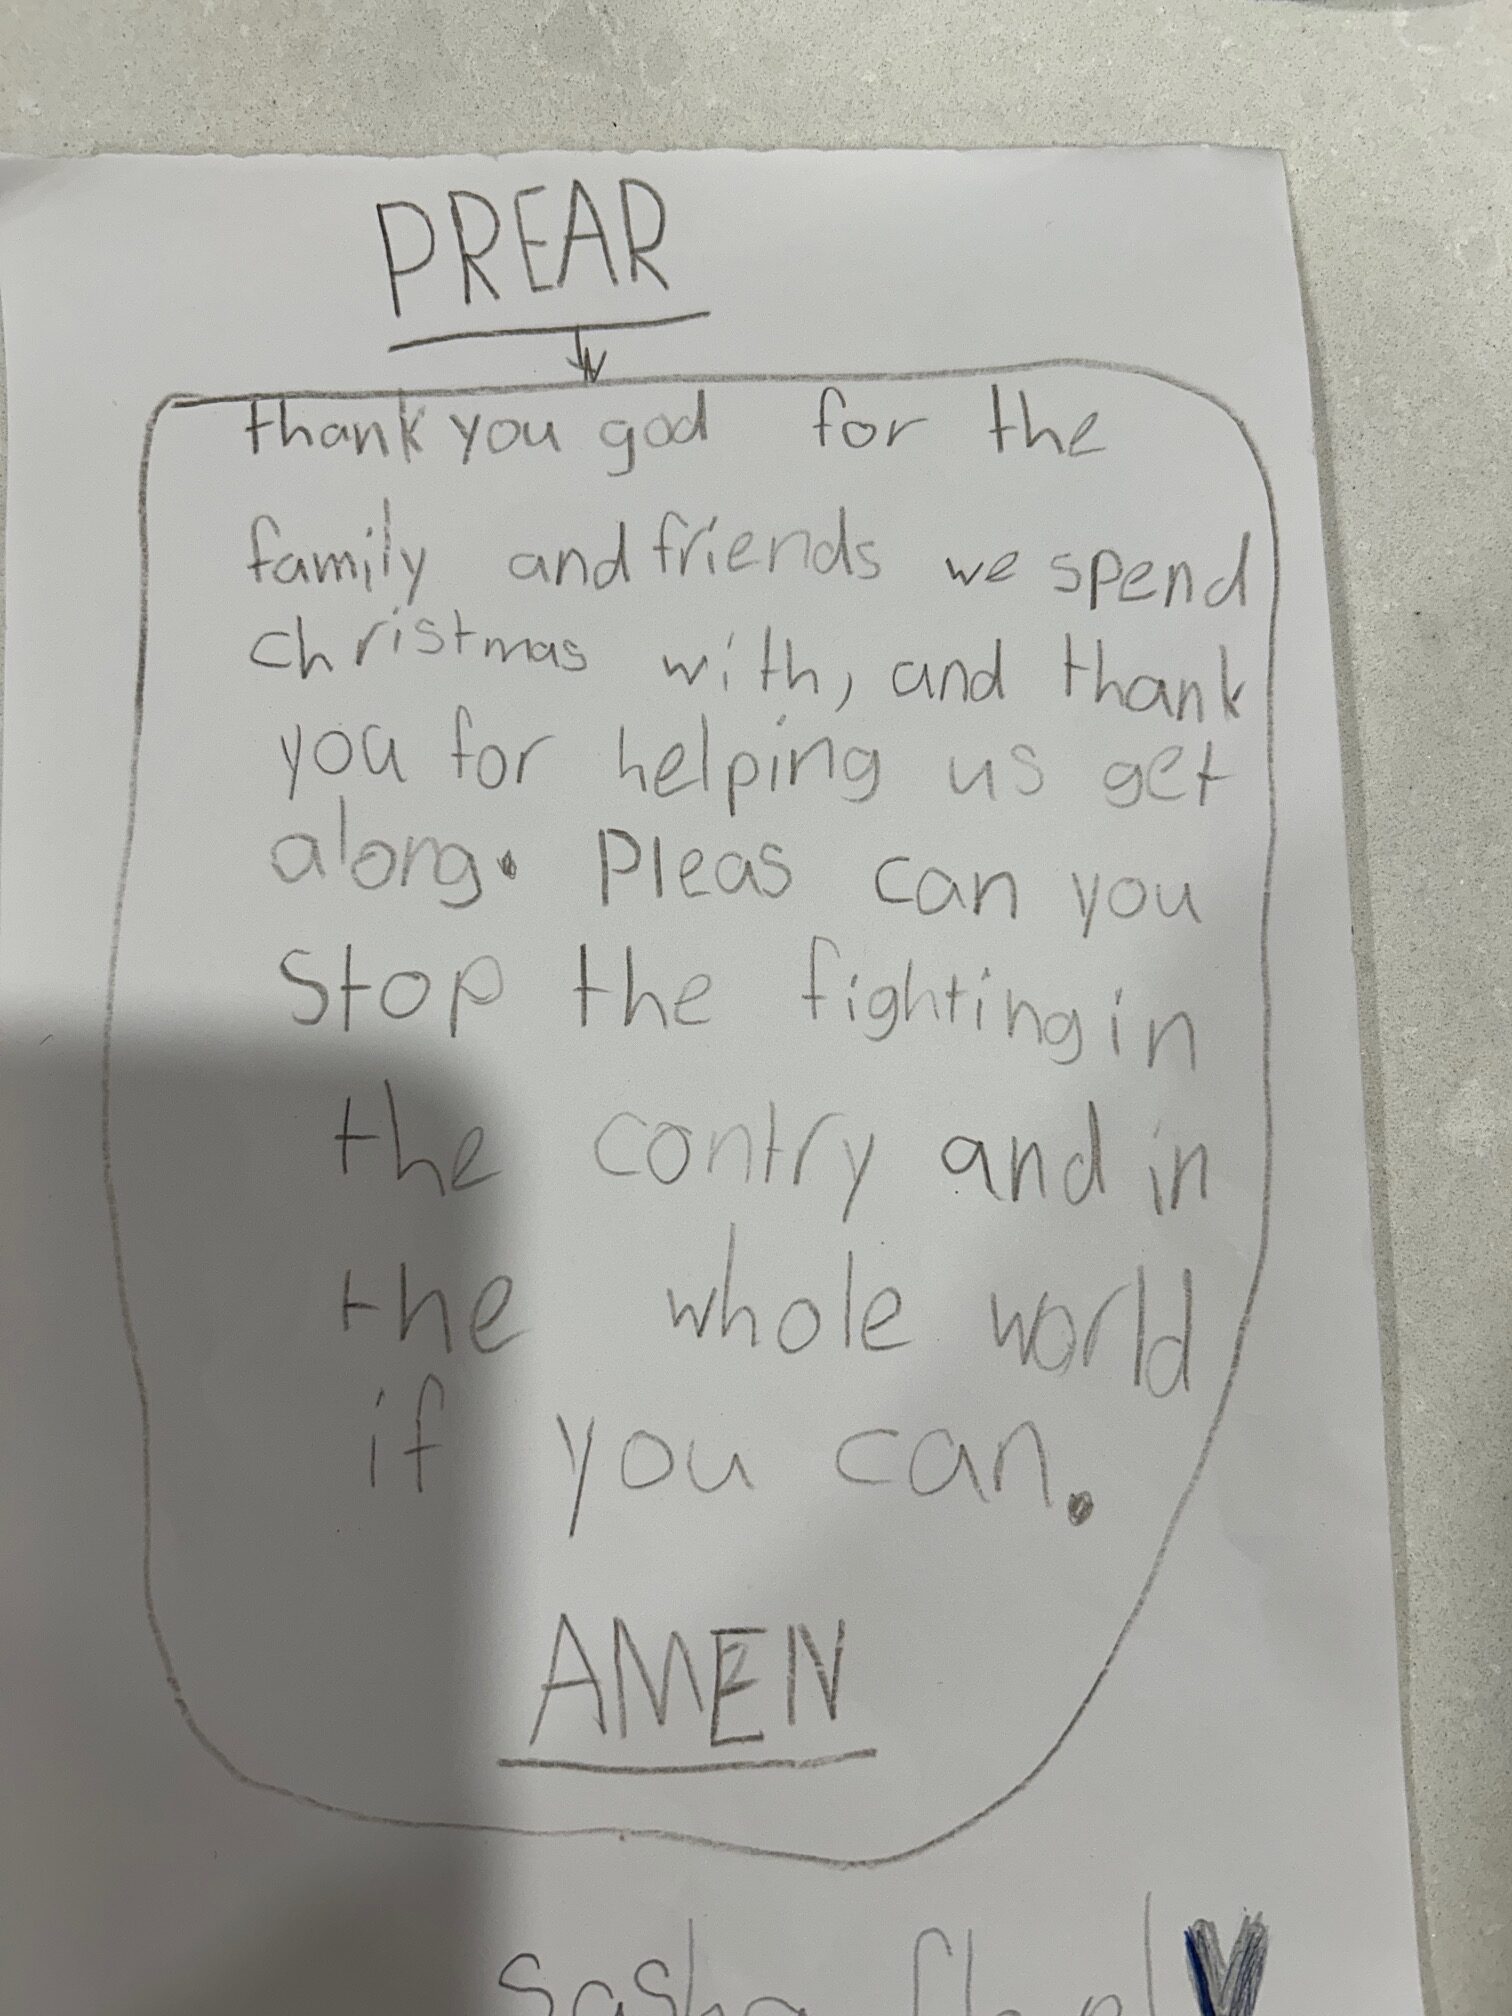 PREAR
thank you god for the
family and friends we spend
christmas with, and thank
you for helping us get
along. Pleas can you
stop the fighting in
the contry and in
the whole world
if you can.
AMEN
Sasha